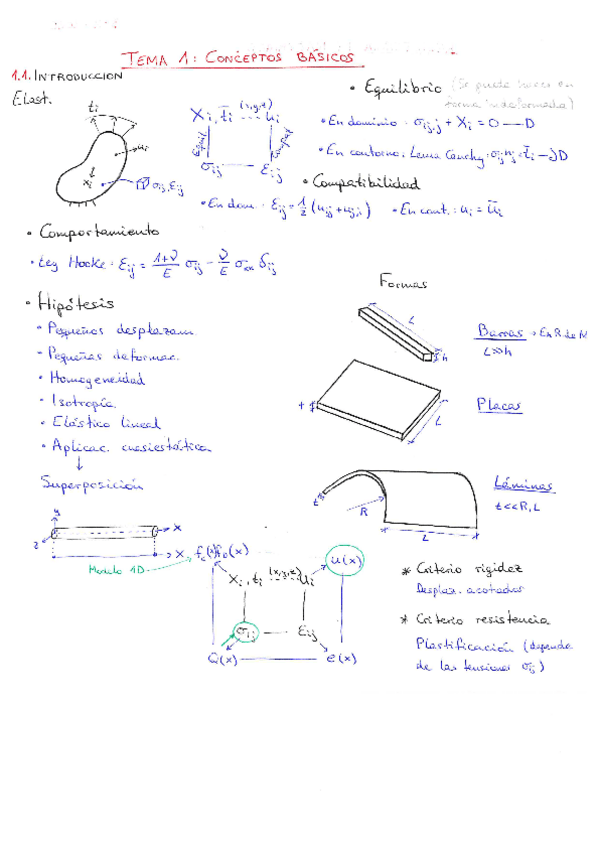 TEMA 1: CONCEPTOS BÁSICOS
1.1. INTRODUCCION
Elast.
t̄i
ui
Xi
σij, Eij
Xi, t̄i (x,y,z) ui
Equil
Compat
σij Eij
• Equilibrio (Se puede hacer en forma indeformada)
• En dominio: σij,j + Xi = 0 — D
• En contorno: Lema Cauchy: σij nj = t̄i — ∂D
• Compatibilidad
• En dom.: Eij = 1/2 (ui,j + uj,i) • En cont.: ui = ūi
• Comportamiento
• Ley Hooke: Eij = (1+ν)/E σij - ν/E σkk δij
• Hipótesis
• Pequeños desplazam.
• Pequeñas deformac.
• Homogeneidad
• Isotropía
• Elástico lineal
• Aplicac. cuasiestática
↓
Superposición
Formas
L
h
Barras → E R de M
L>>h
t
L
Placas
t
R
L
Láminas
t<<R,L
y
x
z
→ x
Modelo 1D
(x)
u(x)
Xi, ti (x,y,z) ui
σij Eij
Q(x) e(x)
* Criterio rigidez
Desplaz. acotados
* Criterio resistencia
Plastificación (depende
de las tensiones σij)